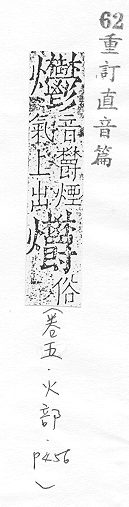 62重訂直音篇
爩音鬱煙
氣上出㷉俗
(卷五.火部.p456)